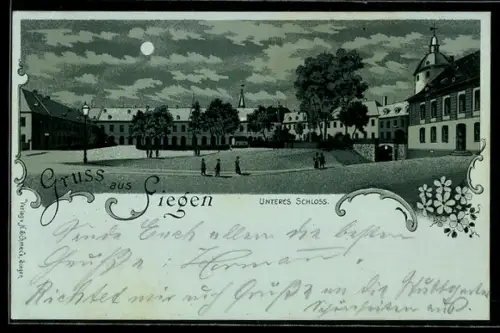 Gruss aus Siegen
UNTERES SCHLOSS.
Sende Euch allen die besten
Grüße: Herman.
Richtet mir auch Grüße an die Stuttgarter
Schönheiten aus.
Verlag v.
Siegen